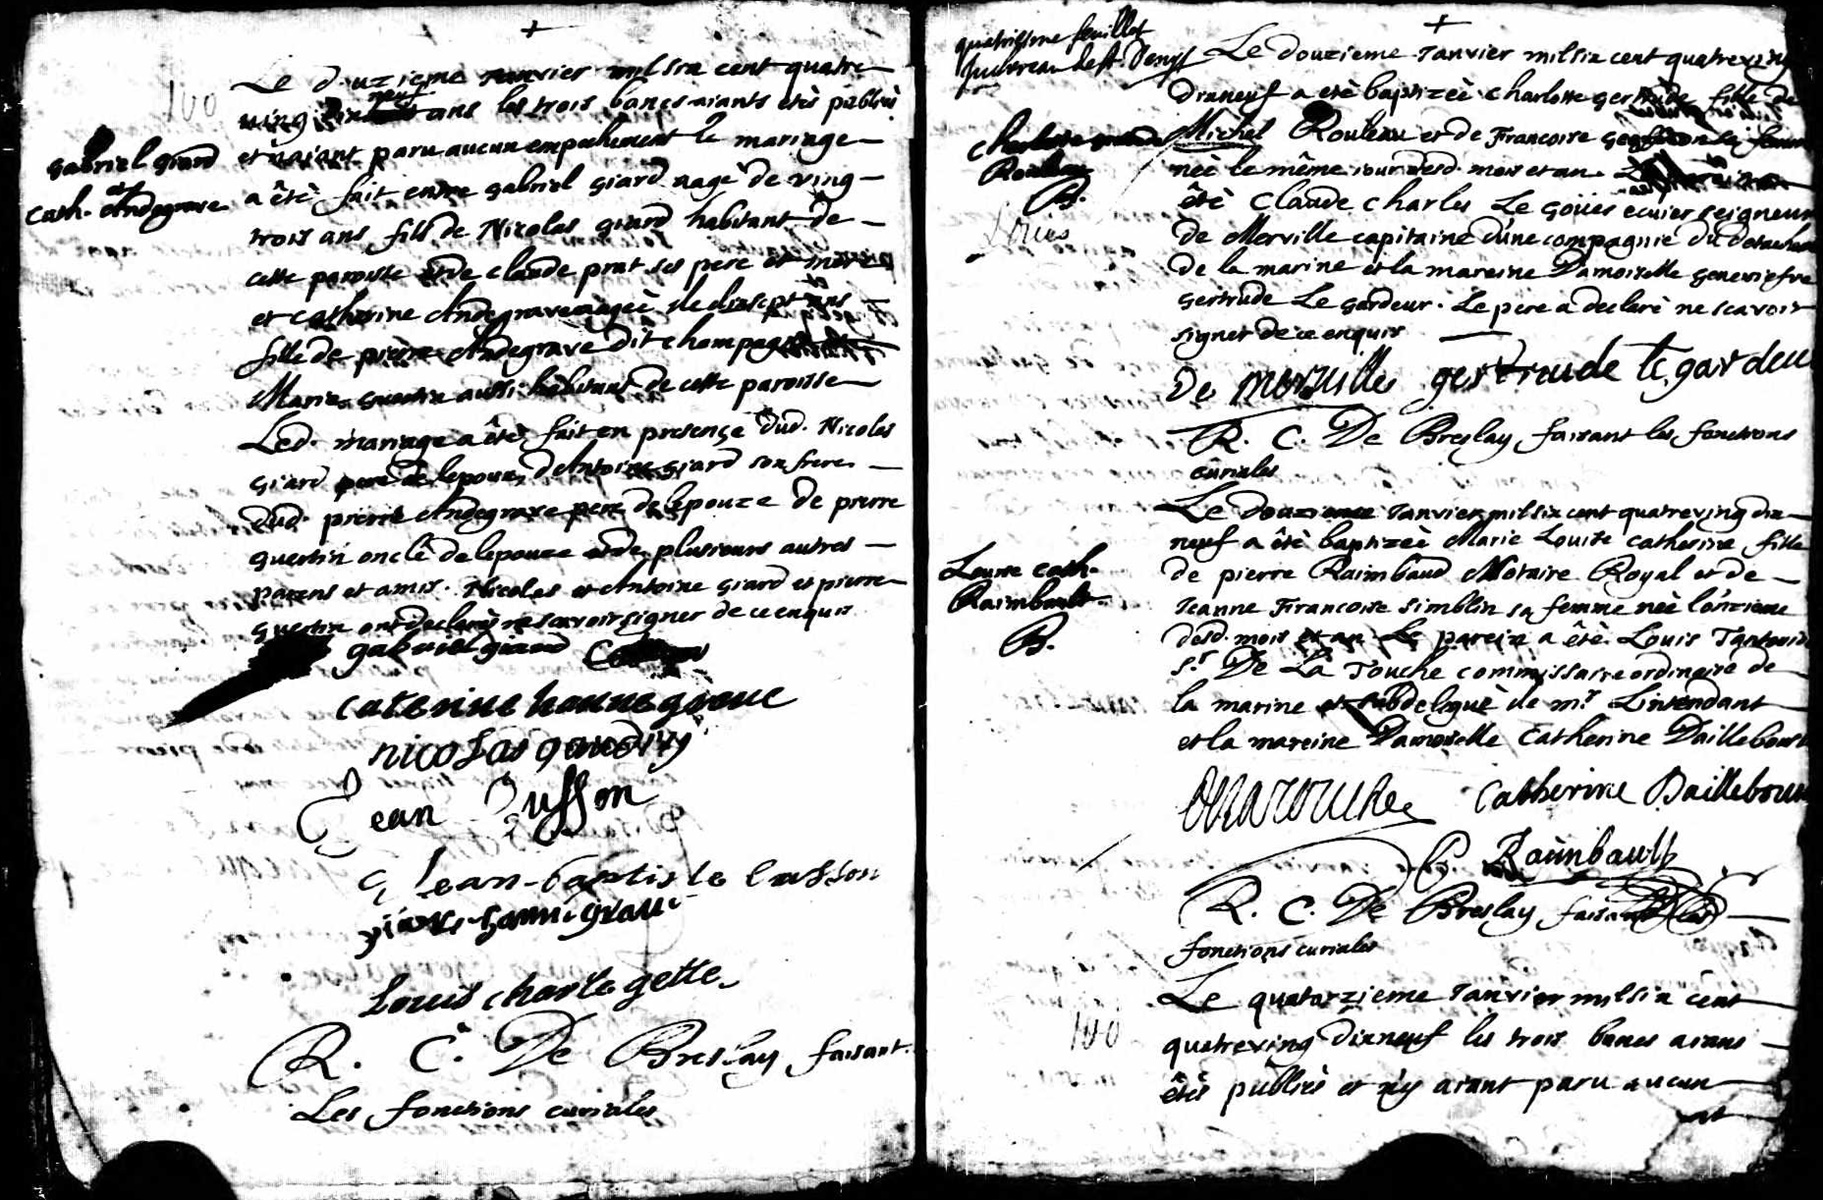 Le douzieme Janvier mil six cent quatre
ving dix neuf ans les trois bancs aiants etés publiés
et n'aiant paru aucun empechement le mariage
a êtè fait entre gabriel giard aagé de ving
trois ans fils de Nicolas giard habitant de
cette paroisse et de claude prat ses pere et mere
et catherine Andegrave aageè de dixsept ans
fille de pierre Andegrave dit champagne
Marie quertin aussi habitant de cette paroisse
Led. mariage a êtè fait en presence dud. Nicolas
giard pere de lepoux, d'Antoine giard son frere
dud. pierre Andegrave pere de lepouze de pierre
quertin oncle de lepouze et de plusieurs autres
parens et amis. Nicolas et Antoine giard et pierre
quertin ont declarè ne scavoir signer de ce enquis
gabriel giard
caterine hannegraue
nicolas gaudry
Jean Husson
Jean-baptiste
pierre hannigraue
Louis charle gette
R. C. De Breslay faisant
Les fonctions curiales
gabriel giard
et
cath. Andegrave
100
quatrieme feuillet
Le douzieme Janvier mil six cent quatreving
dixneuf a etè baptizeè charlotte gertrude fille de
Michel Rouleau et de Francoise sa femme
neè le même jour desd. mois et an.
êtè Claude Charles Le goües ecuier seigneur
de Merville capitaine d'une compagnie du detachem
de la marine et la mareine Damoiselle geneviefve
gertrude Le gardeur. Le pere a declarè ne scavoir
signer de ce enquis
De merville gertrude le gardeu
R. C. De Breslay faisant les fonctions
curiales
Charlotte
Rouleau
B.
Le douzieme Janvier mil six cent quatreving dix
neuf a êtè baptizeè Marie Louise catherine fille
de pierre Raimbaud Notaire Royal et de
Jeanne Francoise simblin sa femme neè l'onzieme
desd. mois et an. Le parein a êtè Louis Tantouin
Sr. De La Touche commissaire ordinaire de
la marine et subdeleguè de mr. L'intendant
et la mareine Damoiselle Catherine Daillebout
Louise cath.
Raimbault
B.
De Latouche Catherine Daillebout
P. Raimbault
R. C. De Breslay faisant les
fonctions curiales
100
Le quatorzieme Janvier mil six cent
quatreving dixneuf les trois bancs aians
êtès publiès et n'y aiant paru aucun